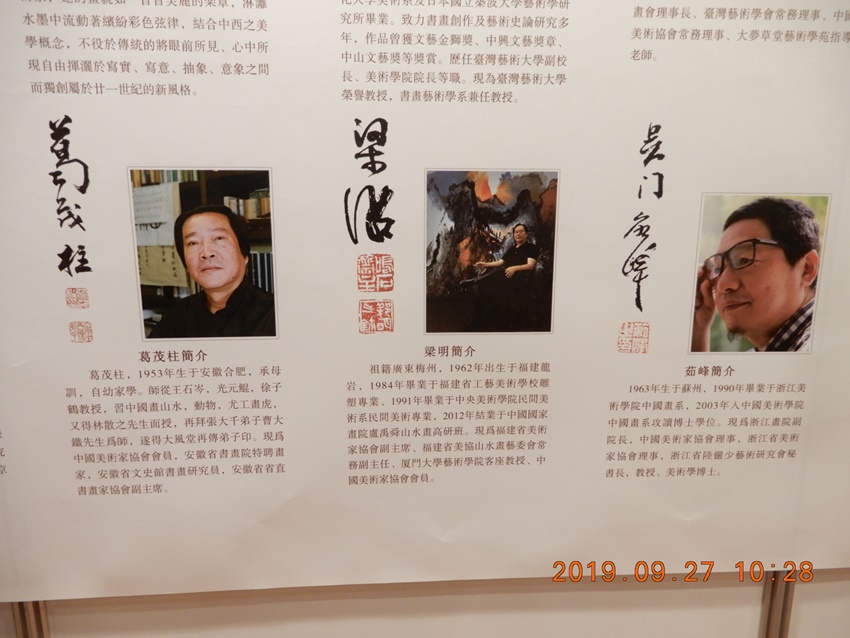 水墨中流動著繽紛彩色弦律，結合中西之美
學概念，不役於傳統的將眼前所見、心中所
現自由揮灑於寫實、寫意、抽象、意象之間
而獨創屬於廿一世紀的新風格。
究所畢業。致力書畫創作及藝術史論研究多
年，作品曾獲文藝金獅獎、中興文藝獎章、
中山文藝獎等獎賞。歷任臺灣藝術大學副校
長、美術學院院長等職。現為臺灣藝術大學
榮譽教授，書畫藝術學系兼任教授。
畫會理事長、臺灣藝術學會常務理事、中國
美術協會常務理事、大夢草堂藝術學苑指導
老師。
葛茂柱
葛茂柱簡介
葛茂柱，1953年生于安徽合肥，承母
訓，自幼家學。師從王石岑，光元鯤，徐子
鶴教授，習中國畫山水，動物，尤工畫虎，
又得林散之先生面授，再拜張大千弟子曹大
鐵先生爲師，遂得大風堂再傳弟子印。現爲
中國美術家協會會員，安徽省書畫院特聘畫
家，安徽省文史館書畫研究員，安徽省省直
書畫家協會副主席。
梁明簡介
祖籍廣東梅州，1962年出生于福建龍
岩，1984年畢業于福建省工藝美術學校雕
塑專業、1991年畢業于中央美術學院民間美
術系民間美術專業，2012年結業于中國國家
畫院盧禹舜山水畫高研班。現爲福建省美術
家協會副主席、福建省美協山水畫藝委會常
務副主任、厦門大學藝術學院客座教授、中
國美術家協會會員。
茹峰簡介
1963年生于蘇州，1990年畢業于浙江美
術學院中國畫系，2003年入中國美術學院
中國畫系攻讀博士學位。現爲浙江畫院副
院長，中國美術家協會理事，浙江省美術
家協會理事，浙江省陸儼少藝術研究會秘
書長，教授、美術學博士。
2019.09.27 10:28